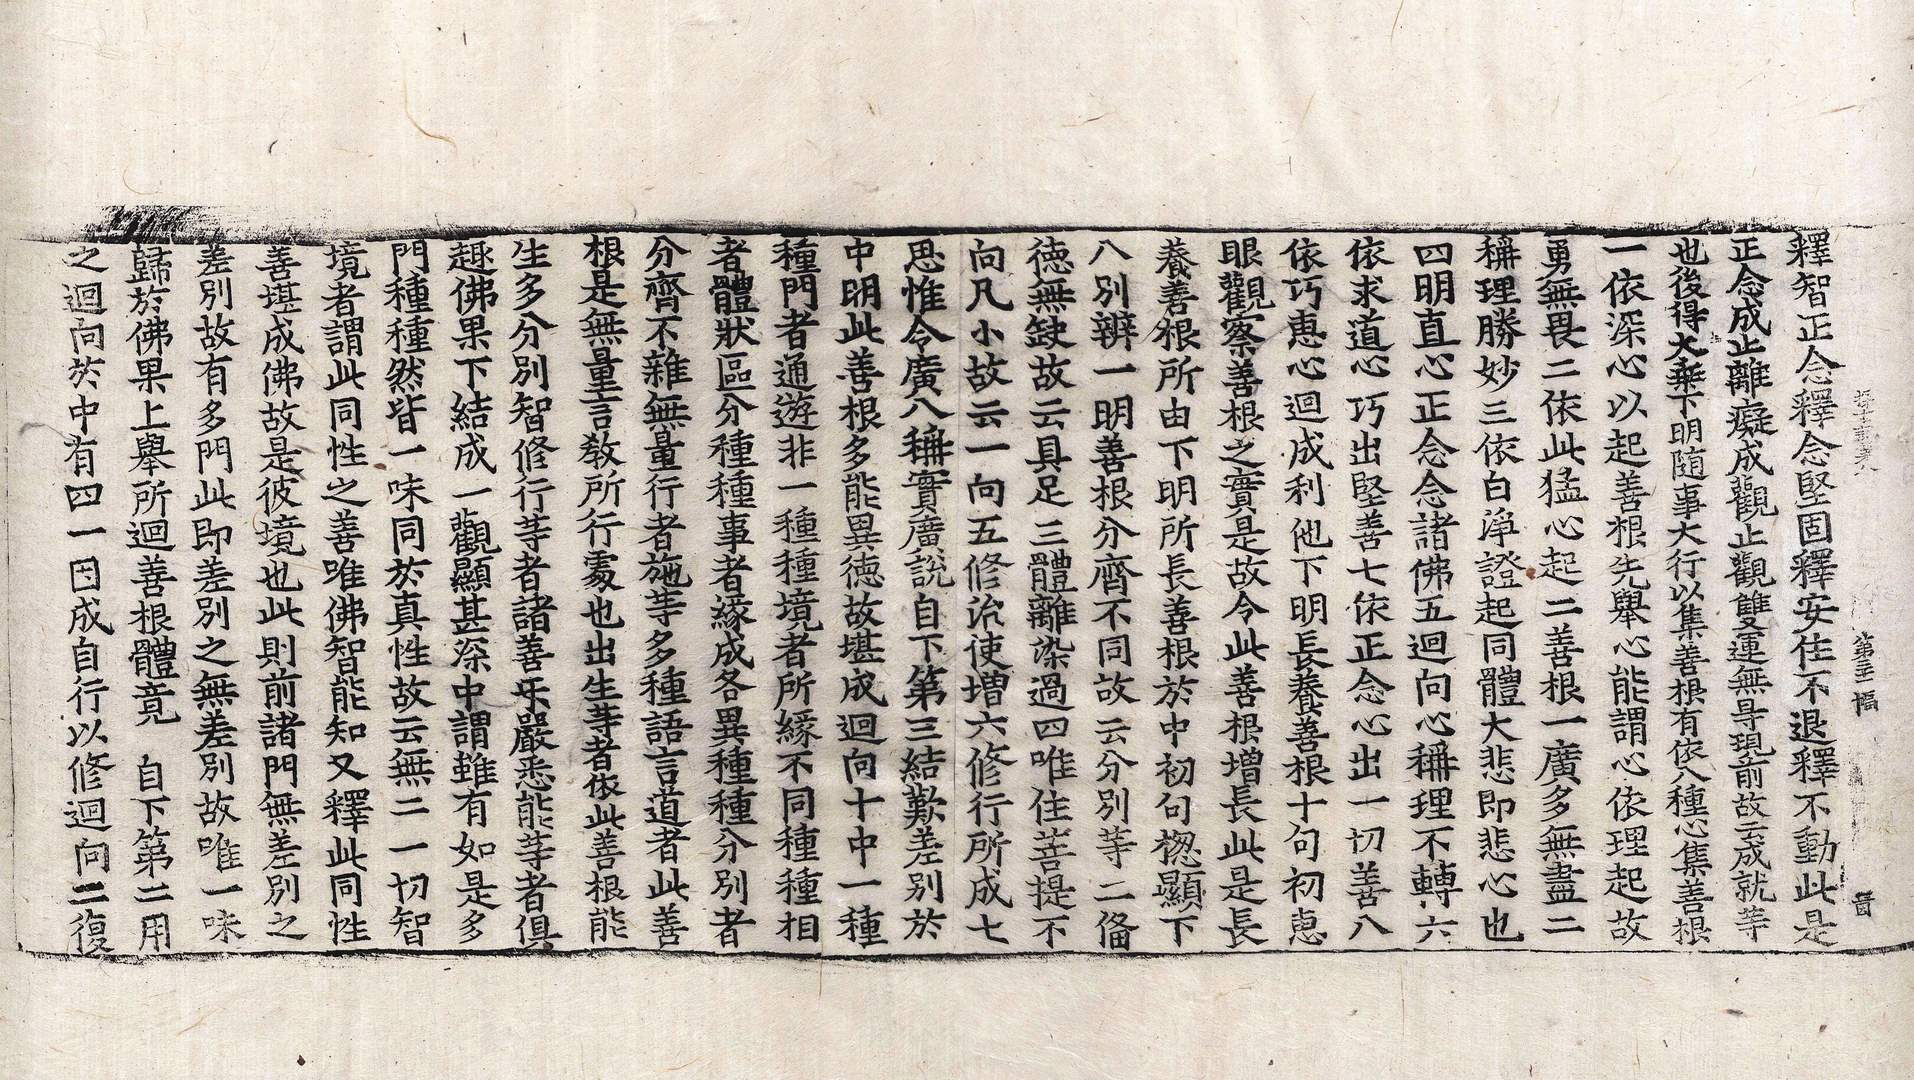 釋智正念釋念堅固釋安住不退釋不動此是
正念成止離癡成觀止觀雙運無㝵現前故云成就等
也後得大乘下明随事大行以集善根有依八種心集善根
一依深心以起善根先舉心能謂心依理起故
勇無畏二依此猛心起二善根一廣多無盡二
稱理勝妙三依白淨證起同體大悲即悲心也
四明直心正念念諸佛五迴向心稱理不轉六
依求道心巧出堅善七依正念心出一切善八
依巧恵心迴成利他下明長養善根十句初恵
眼觀察善根之實是故令此善根增長此是長
養善根所由下明所長善根於中初句揔顯下
八別辨一明善根分齊不同故云分別等二俻
徳無缺故云具足三體離染過四唯住菩提不
向凡小故云一向五修治使增六修行所成七
思惟令廣八稱實廣說自下第三結歎差別於
中明此善根多能異徳故堪成迴向十中一種
種門者通遊非一種種境者所緣不同種種相
者體狀區分種種事者緣成各異種種分別者
分齊不雜無量行者施等多種語言道者此善
根是無量言教所行處也出生等者依此善根能
生多分別智修行等者諸善乐嚴悉能等者俱
趣佛果下結成一觀顯甚深中謂雖有如是多
門種種然皆一味同於真性故云無二一切智
境者謂此同性之善唯佛智能知又釋此同性
善堪成佛故是彼境也此則前諸門無差別之
差別故有多門此即差別之無差別故唯一味
歸於佛果上舉所迴善根體竟　自下第二用
之迴向於中有四一因成自行以修迴向二復